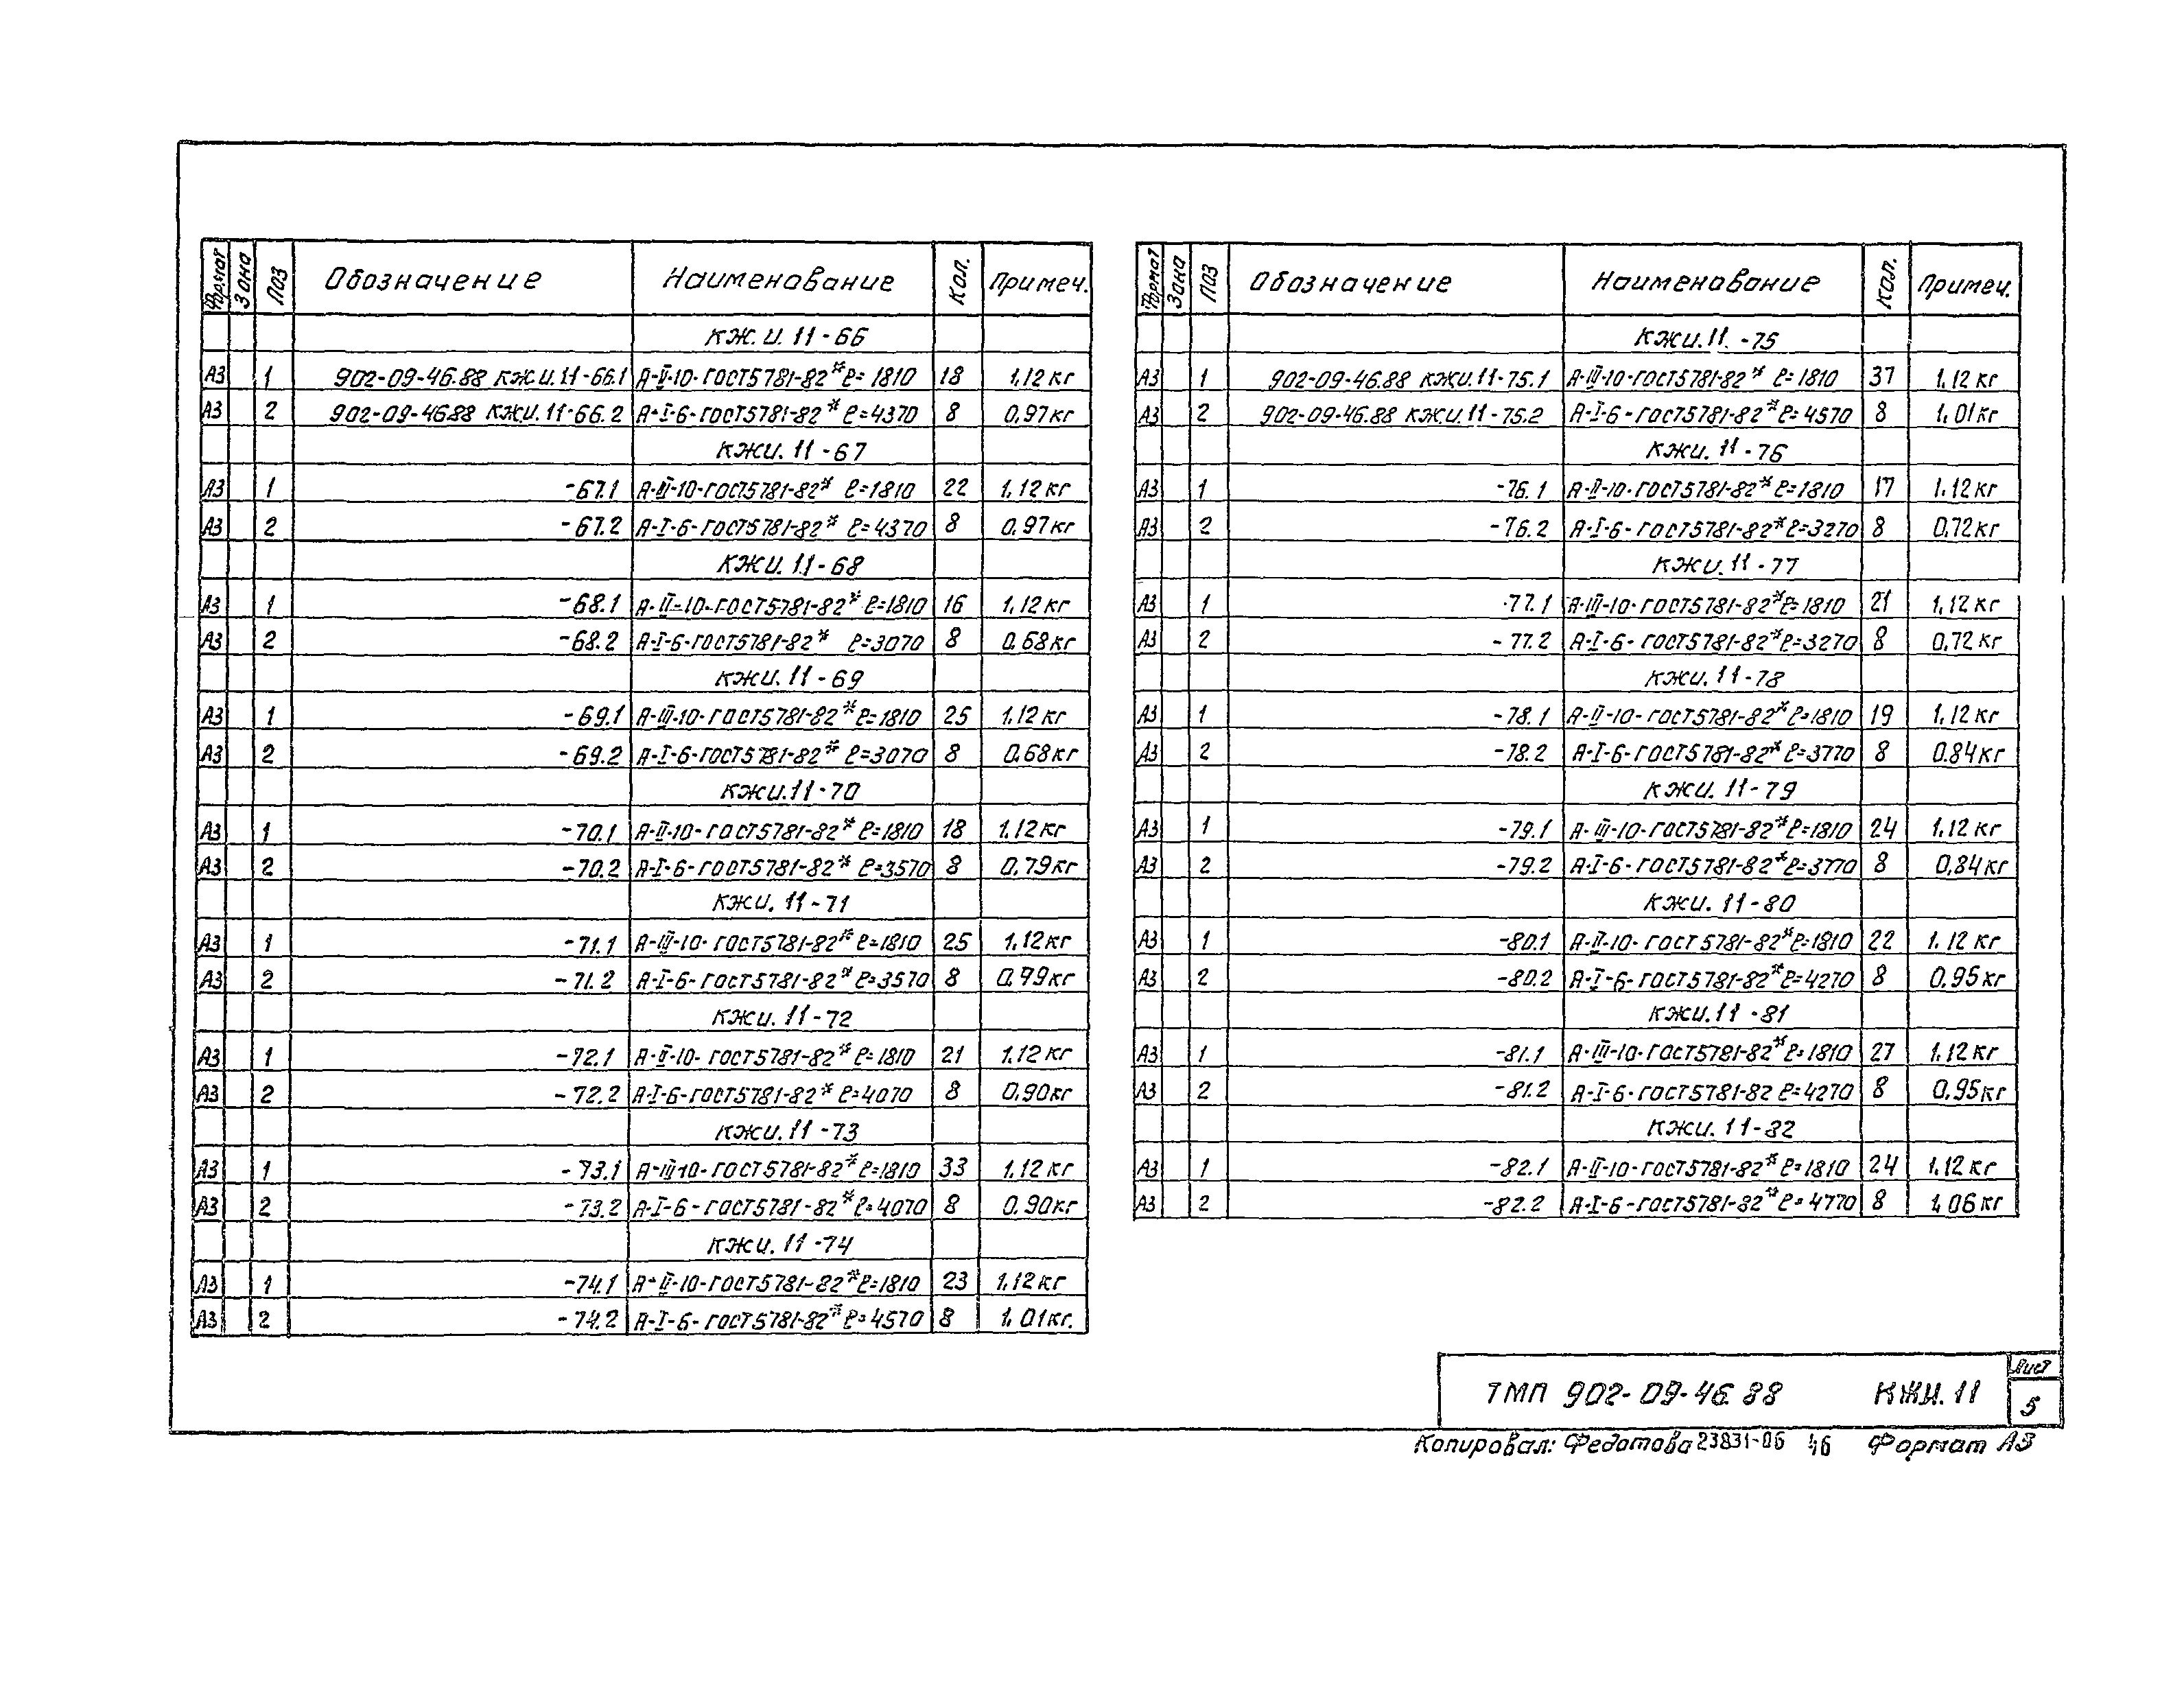 Формат Зона Поз Обозначение Наименование Кол. Примеч.
КЖ.И.11-66
А3 1 902-09-46.88 КЖИ.11-66.1 А-II-10-ГОСТ5781-82* ℓ=1810 18 1,12 кг
А3 2 902-09-46.88 КЖИ.11-66.2 А-I-6-ГОСТ5781-82* ℓ=4370 8 0,97кг
КЖИ.11-67
А3 1 -67.1 А-III-10-ГОСТ5781-82* ℓ=1810 22 1,12кг
А3 2 -67.2 А-I-6-ГОСТ5781-82* ℓ=4370 8 0,97кг
КЖИ.11-68
А3 1 -68.1 А-II-10-ГОСТ5781-82* ℓ=1810 16 1,12кг
А3 2 -68.2 А-I-6-ГОСТ5781-82* ℓ=3070 8 0,68кг
КЖИ.11-69
А3 1 -69.1 А-III-10-ГОСТ5781-82* ℓ=1810 25 1,12кг
А3 2 -69.2 А-I-6-ГОСТ5781-82* ℓ=3070 8 0,68кг
КЖИ.11-70
А3 1 -70.1 А-II-10-ГОСТ5781-82* ℓ=1810 18 1,12кг
А3 2 -70.2 А-I-6-ГОСТ5781-82* ℓ=3570 8 0,79кг
КЖИ.11-71
А3 1 -71.1 А-III-10-ГОСТ5781-82* ℓ=1810 25 1,12кг
А3 2 -71.2 А-I-6-ГОСТ5781-82* ℓ=3570 8 0,79кг
КЖИ.11-72
А3 1 -72.1 А-II-10-ГОСТ5781-82* ℓ=1810 21 1,12кг
А3 2 -72.2 А-I-6-ГОСТ5781-82* ℓ=4070 8 0,90кг
КЖИ.11-73
А3 1 -73.1 А-III-10-ГОСТ5781-82* ℓ=1810 33 1,12кг
А3 2 -73.2 А-I-6-ГОСТ5781-82* ℓ=4070 8 0,90кг
КЖИ.11-74
А3 1 -74.1 А-II-10-ГОСТ5781-82* ℓ=1810 23 1,12кг
А3 2 -74.2 А-I-6-ГОСТ5781-82* ℓ=4570 8 1,01кг.
Формат Зона Поз Обозначение Наименование Кол. Примеч.
КЖИ.11.-75
А3 1 902-09-46.88 КЖИ.11-75.1 А-III-10-ГОСТ5781-82* ℓ=1810 37 1,12кг
А3 2 902-09-46.88 КЖИ.11-75.2 А-I-6-ГОСТ5781-82* ℓ=4570 8 1,01кг
КЖИ.11-76
А3 1 -76.1 А-II-10-ГОСТ5781-82* ℓ=1810 17 1.12кг
А3 2 -76.2 А-I-6-ГОСТ5781-82* ℓ=3270 8 0,72кг
КЖИ.11-77
А3 1 -77.1 А-III-10-ГОСТ5781-82* ℓ=1810 21 1,12кг
А3 2 -77.2 А-I-6-ГОСТ5781-82* ℓ=3270 8 0,72кг
КЖИ.11-78
А3 1 -78.1 А-II-10-ГОСТ5781-82* ℓ=1810 19 1,12кг
А3 2 -78.2 А-I-6-ГОСТ5781-82* ℓ=3770 8 0.84кг
КЖИ.11-79
А3 1 -79.1 А-III-10-ГОСТ5781-82* ℓ=1810 24 1,12кг
А3 2 -79.2 А-I-6-ГОСТ5781-82* ℓ=3770 8 0,84кг
КЖИ.11-80
А3 1 -80.1 А-II-10-ГОСТ5781-82* ℓ=1810 22 1.12 кг
А3 2 -80.2 А-I-6-ГОСТ5781-82* ℓ=4270 8 0,95кг
КЖИ.11-81
А3 1 -81.1 А-III-10-ГОСТ5781-82* ℓ=1810 27 1,12кг
А3 2 -81.2 А-I-6-ГОСТ5781-82 ℓ=4270 8 0,95кг
КЖИ.11-82
А3 1 -82.1 А-II-10-ГОСТ5781-82* ℓ=1810 24 1,12кг
А3 2 -82.2 А-I-6-ГОСТ5781-82* ℓ=4770 8 1,06кг
ТМП 902-09-46.88 КЖИ.11 Лист 5
Копировал: Федотова 23831-06 46 Формат А3